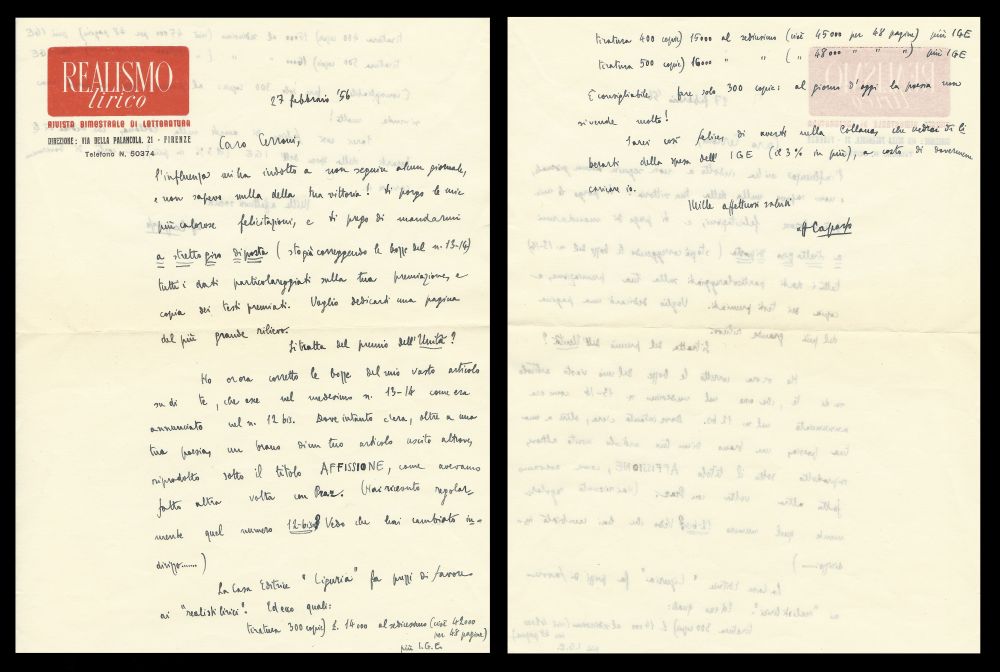 REALISMO
lirico
RIVISTA BIMESTRALE DI LETTERATURA
DIREZIONE: VIA DELLA PALANCOLA, 21 - FIRENZE
Telefono N. 50374
27 febbraio '56
Caro Cerroni,
l'influenza mi ha indotto a non seguire alcun giornale,
e non sapevo nulla della tua vittoria! Ti porgo le mie
più calorose felicitazioni, e ti prego di mandarmi
a stretto giro di posta (sto già correggendo le bozze del n. 13-14)
tutti i dati particolareggiati sulla tua premiazione, e
copia dei testi premiati. Voglio dedicarti una pagina
del più grande rilievo.
Si tratta del premio dell'Unità?
Ho or ora corretto le bozze del mio vasto articolo
su di te, che esce nel medesimo n. 13-14 come era
annunciato nel n. 12 bis. Dove intanto c'era, oltre a una
tua poesia, un brano di un tuo articolo uscito altrove,
riprodotto sotto il titolo AFFISSIONE, come avevamo
fatto altra volta con Praz. (Hai ricevuto regolar-
mente quel numero 12-bis? Vedo che hai cambiato in-
dirizzo.......)
La Casa Editrice "Liguria" fa prezzi di favore
ai "realisti lirici". Ed ecco quali:
tiratura 300 copie) £. 14000 al sedicesimo (cioè 42000
per 48 pagine)
più I.G.E.
tiratura 400 copie) 15000 al sedicesimo (cioè 45000 per 48 pagine) più IGE
tiratura 500 copie) 16000 " " ( " 48000 " " " ) più IGE
È consigliabile fare solo 300 copie: al giorno d'oggi la poesia non
si vende molto!
Sarei così felice, di averti nella Collana, che vedrei di li
berarti della spesa dell'IGE (il 3% in più), a costo di dovermene
caricare io.
Mille affettuosi saluti
A Capasso